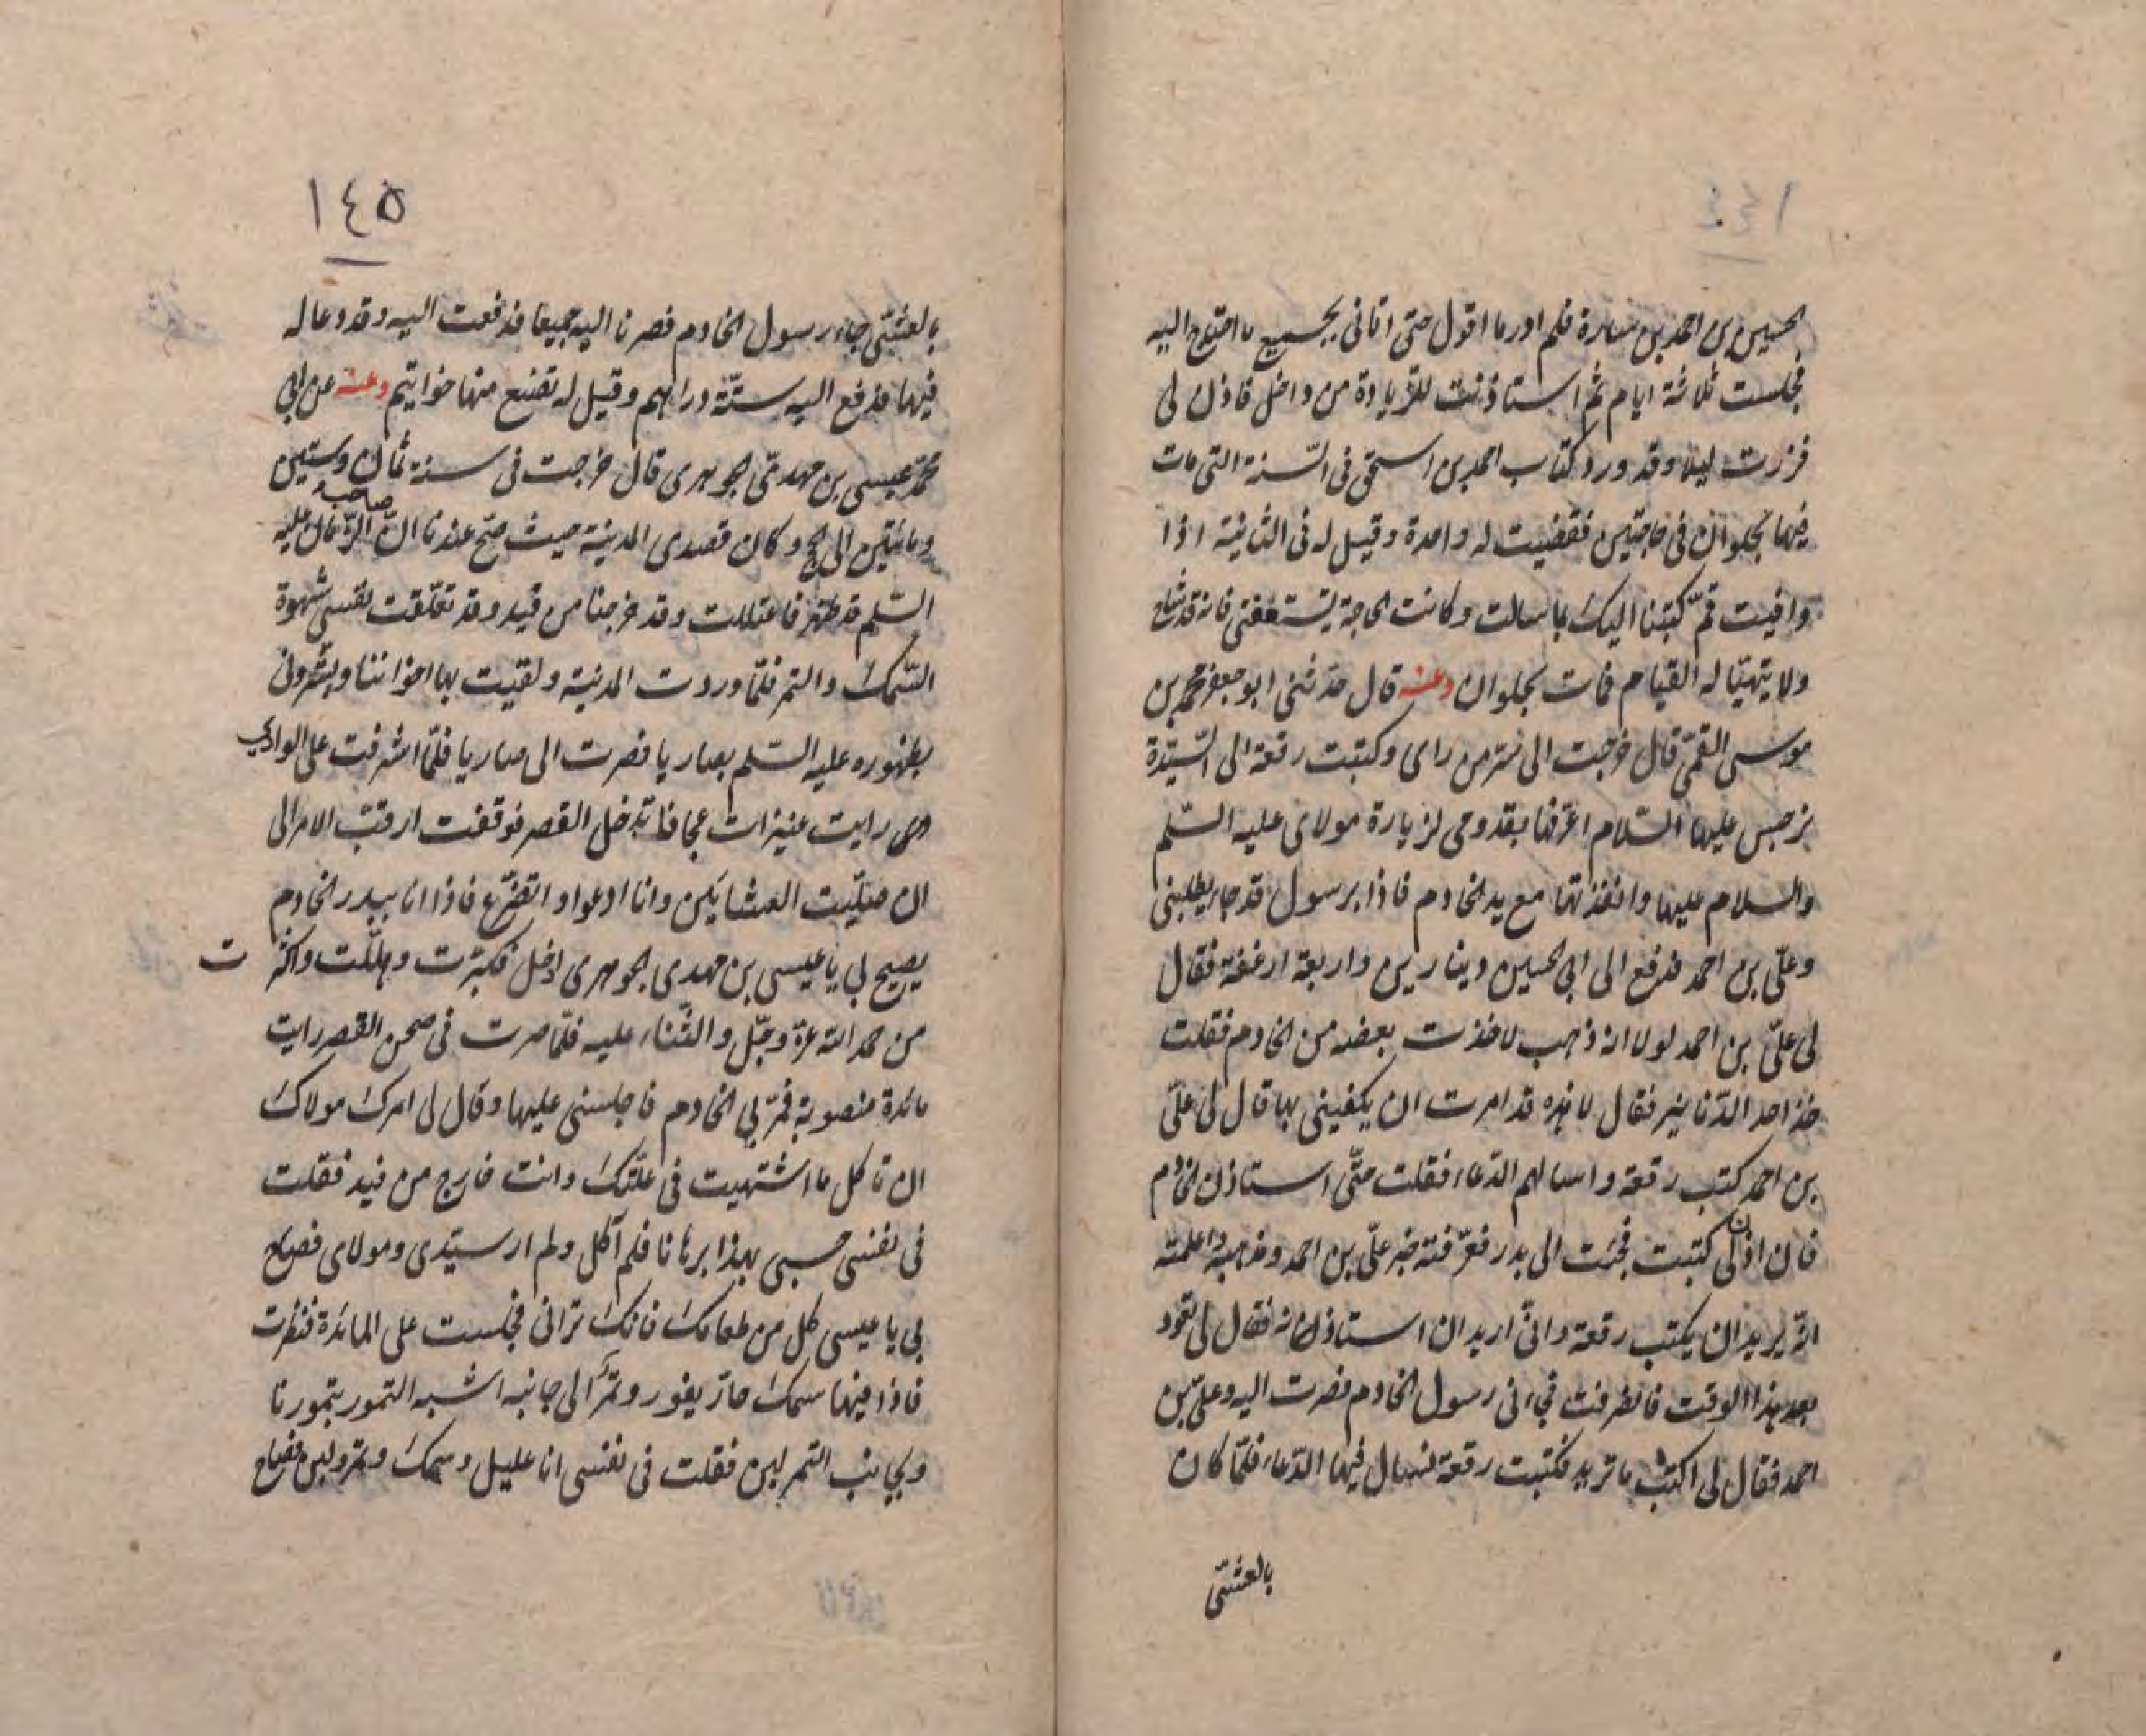 الحسين بن احمد بن سارة فلم ادر ما اقول حتى اتانى بجميع ما احتاج اليه
فجلست ثلاثة ايام ثم استاذنت للزيادة من داخل فاذن لى
فزرت ليلا وقد ورد كتاب احمد بن اسحق فى السّنة التى مات
فيها بحلوان فى حاجتين فقضيت له واحدة وقيل له فى الثانية اذا
وافيت قمّ كتبنا اليك بما سالت وكانت الحاجة يستعفى فانه قد شاخ
ولا يتهيّا له القيام فمات بحلوان وعنه قال حدثنى ابو جعفر محمد بن
موسى القمّى قال خرجت الى سرّ من راى وكتبت رقعة الى السّيّدة
نرجس عليها السّلام اعرّفها بقدومى لزيارة مولاى عليه السّلم
والسلام عليها وانفذتها مع يد الخادم فاذا برسول قد جاء يطلبنى
وعلىّ بن احمد فدفع الى ابى الحسين دينارين واربعة ارغفة فقال
لى علىّ بن احمد لولا انه ذهب لاخذت بعضه من الخادم فقلت
خذ احد الدّنانير فقال لا هذه قد امرت ان يكفينى بها قال لى علىّ
بن احمد كتب رقعة واسالهم الدّعاء فقلت حتّى استاذن الخادم
فان اذن لى كتبت فجئت الى بدر فعرّفته خبر علىّ بن احمد ومذهبه واعلمته
انّه يريد ان يكتب رقعة وانّى اريد ان استاذنه فقال لى تعود
بعد هذا الوقت فانصرفت فجاءنى رسول الخادم فصرت اليه وعلىّ بن
احمد فقال لى اكتب ما تريد فكتبت رقعة نسال فيها الدّعاء فلمّا كان
بالعشىّ
١٤٥
بالعشىّ جاء رسول الخادم فصرنا اليه جميعا فدفعت اليه وقد دعا له
فيها فدفع اليه ستّة دراهم وقيل له تصنع منها خواتيم وعنه عن ابى
محمّد عيسى بن مهدىّ الجوهرى قال خرجت فى سنة ثمان وستين
ومائتين الى الحج وكان قصدى المدينة حيث صحّ عندنا انّ صاحب الزّمان عليه
السّلم قد ظهر فاعتللت وقد خرجنا من فيد وقد تعلّقت نفسى شهوة
السّمك والتمر فلمّا وردت المدينة ولقيت بها اخواننا وبشّرونى
بظهوره عليه السّلم بصاريا فصرت الى صاريا فلمّا اشرفت على الوادى
رايت عنيزات عجافا تدخل القصر فوقفت ارقب الامر الى
ان صلّيت العشائين وانا ادعوا واتضرّع فاذا انا ببدر الخادم
يصيح لى يا عيسى بن مهدى الجوهرى ادخل فكبّرت وهلّلت واكثرت
من حمد الله عزّ وجلّ والثّناء عليه فلمّا صرت فى صحن القصر رايت
مائدة منصوبة فمرّ بى الخادم فاجلسنى عليها وقال لى امرك مولاك
ان تاكل ما اشتهيت فى علّتك وانت خارج من فيد فقلت
فى نفسى حسبى بهذا برهانا فلم آكل ولم ار سيّدى ومولاى فصاح
بى يا عيسى كل من طعامك فانك ترانى فجلست على المائدة فنظرت
فاذا فيها سمك حارّ يفور وتمرا الى جانبه اشبه التمور بتمورنا
وبجانب التمر لبن فقلت فى نفسى انا عليل وسمك وتمر ولبن فصاح